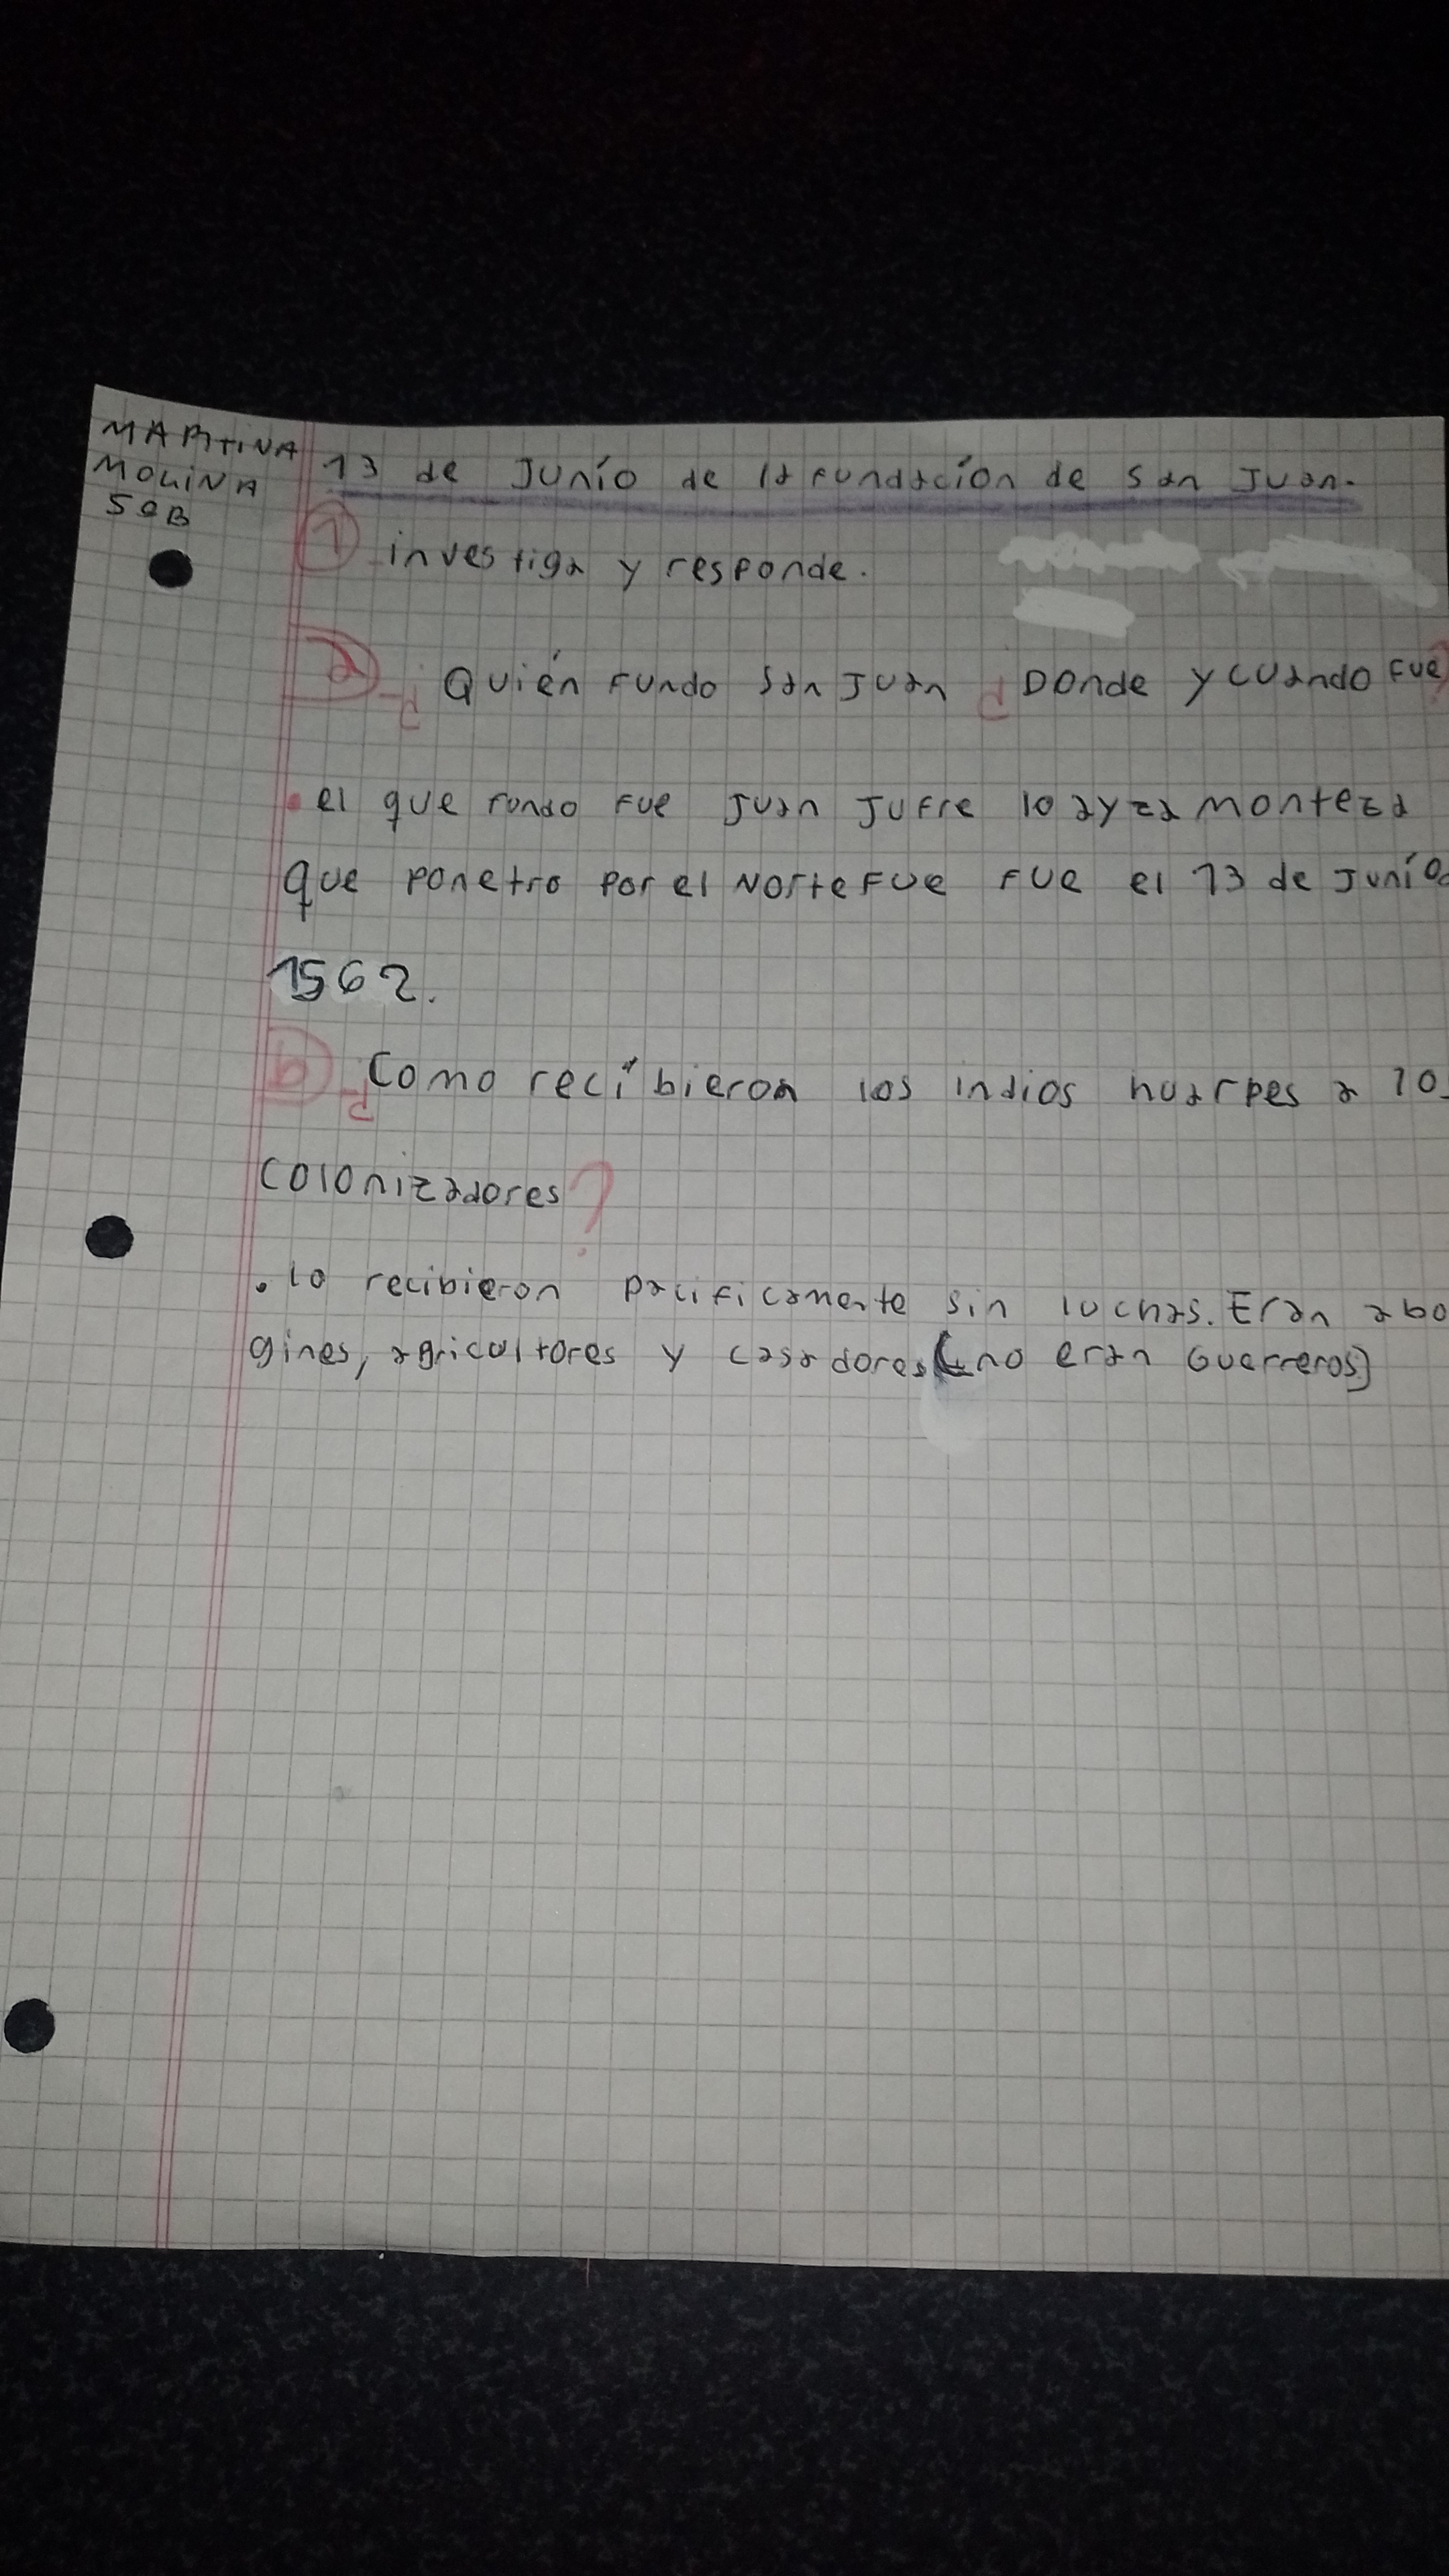 MARTINA
MOLINA
5ºB
13 de Junío de la fundacíon de san Juan.
1 investiga y responde.
a)- ¿Quién fundo san Juan ¿Donde y cuando fue?
. el que fundo fue Juan Jufre loayza monteza
que ponetro por el Norte Fue fue el 13 de Junío
1562.
b)- ¿Como recibieron los indios huarpes a los
colonizadores?
. lo recibieron pacificamente sin luchas. Eran abo
gines, agricultores y casadores (no eran Guerreros)